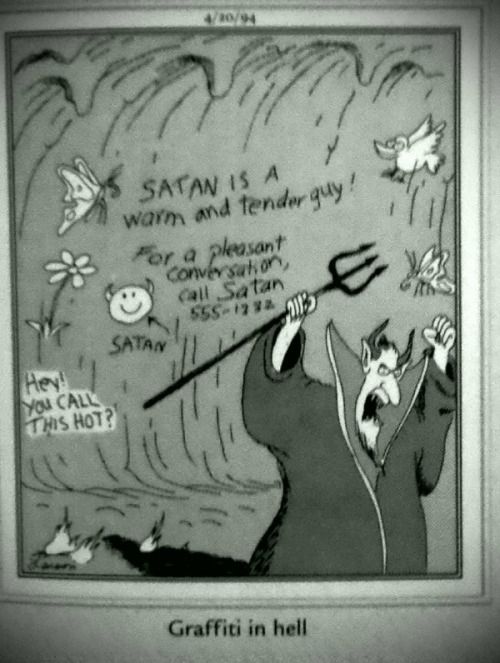 4/20/94
SATAN IS A
warm and tender guy!
For a pleasant
conversation,
call Satan
555-1332
SATAN
Hey!
YOU CALL
THIS HOT?
Larson
Graffiti in hell